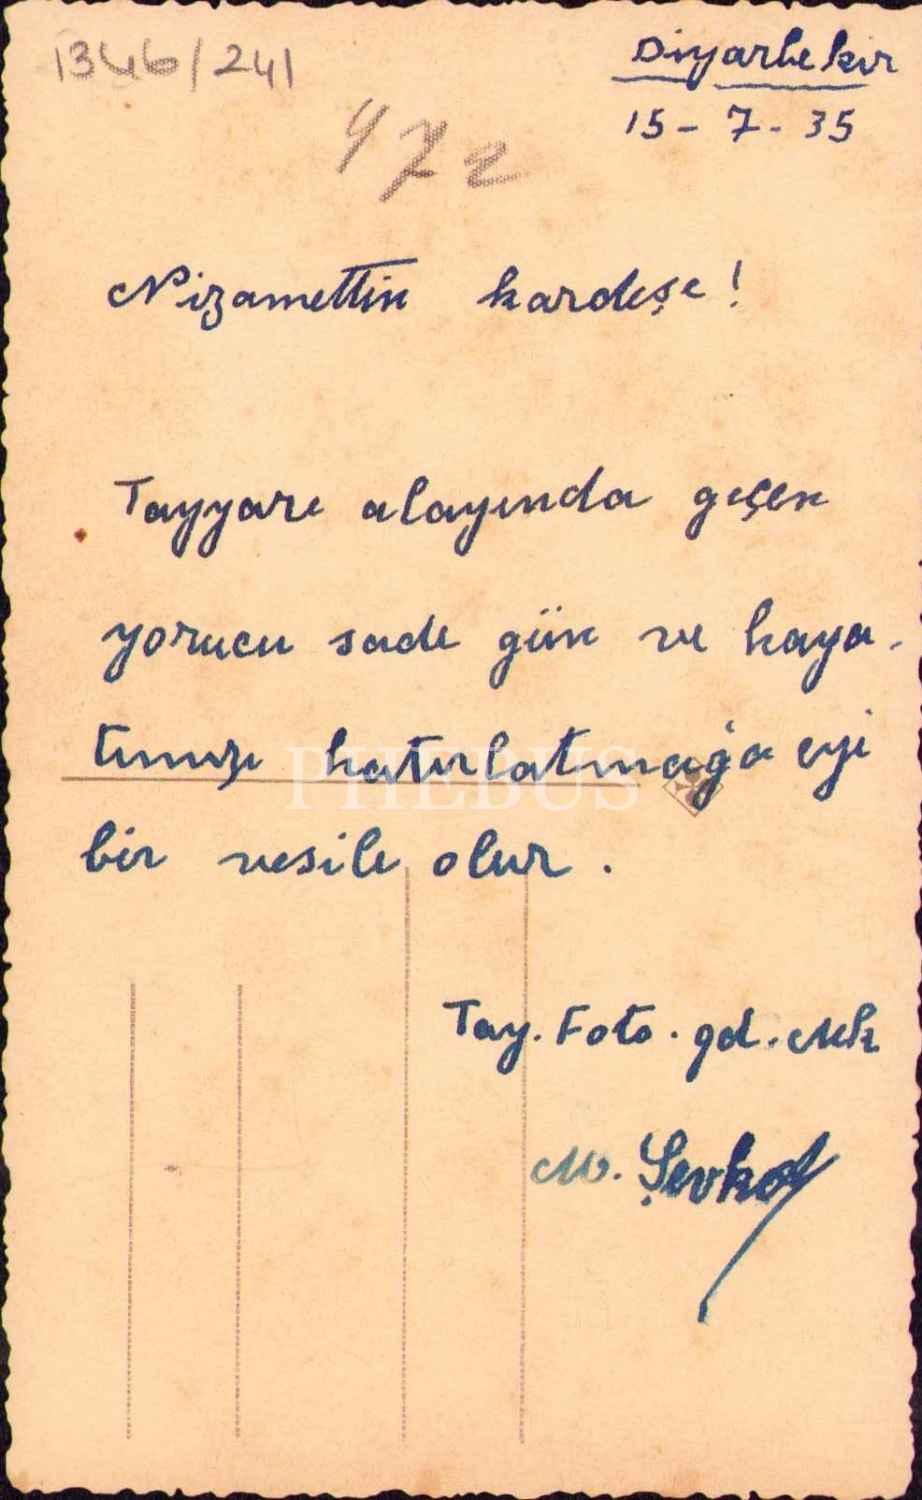 1346/241
Diyarbekir
15-7-35
472
Nizamettin kardeşe!
Tayyare alayında geçen
yorucu sade gün ve haya-
tımızı hatırlatmağa eyi
PHEBUS
bir vesile olur.
Tay. Foto. gd. Mk
M. Şevket